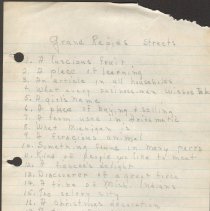 Grand Rapids Streets
1. A luscious fruit
2. A place of learning
3. An article in all households
4. What every business man wishes to be
5. A girls name
6. A place of buying & selling
7. A term used in
8. What Michigan is
9. A ferocious animal
10. Something found in many parks
11. Kind of people we like to meet
12. A
13. Discoverer of a
14. A tribe of Mich. Indians
15. A
16. A Christmas decoration